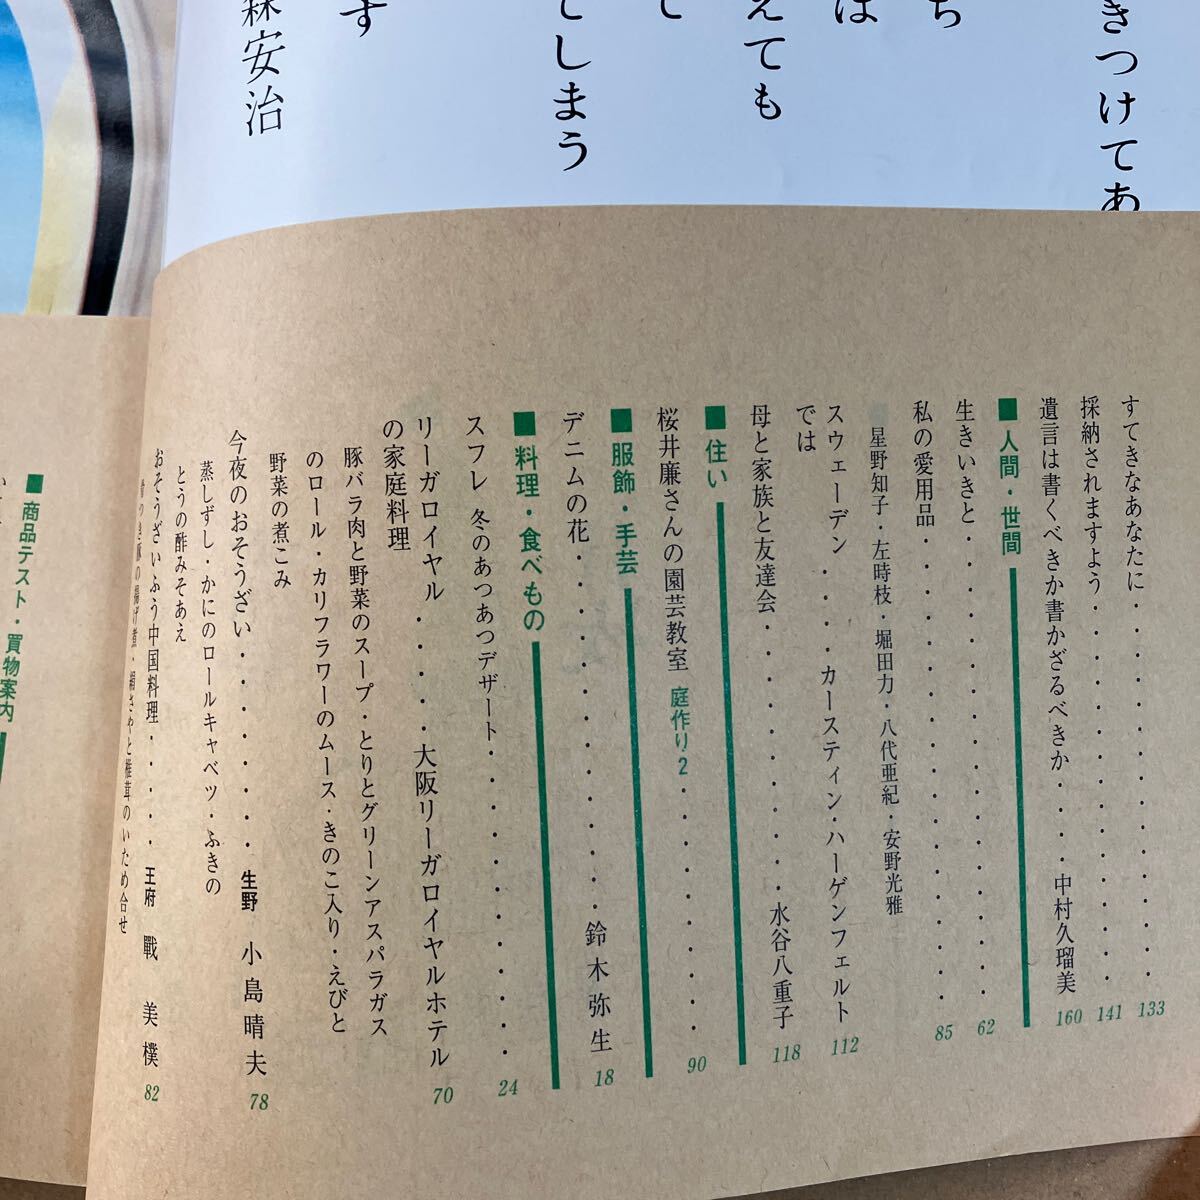 きつけてあ
ち
は
えても
て
てしまう
す
森安治
すてきなあなたに・・・・・・・・・・・・133
採納されますよう・・・・・・・・・・・・141
遺言は書くべきか書かざるべきか・・・・中村久瑠美 160
■人間・世間
生きいきと・・・・・・・・・・・・・62
私の愛用品・・・・・・・・・・・・・85
星野知子・左時枝・堀田力・八代亜紀・安野光雅
スウェーデン・・・・カースティン・ハーゲンフェルト 112
では
母と家族と友達会・・・・・・・・・水谷八重子 118
■住い
桜井廉さんの園芸教室 庭作り2・・・・・・・・90
■服飾・手芸
デニムの花・・・・・・・・・・・鈴木弥生 18
■料理・食べもの
スフレ 冬のあつあつデザート・・・・・・・・24
リーガロイヤル・・・・大阪リーガロイヤルホテル 70
の家庭料理
豚バラ肉と野菜のスープ・とりとグリーンアスパラガス
のロール・カリフラワーのムース・きのこ入り・えびと
野菜の煮こみ
今夜のおそうざい・・・・・・・生野 小島晴夫 78
蒸しずし・かにのロールキャベツ・ふきの
とうの酢みそあえ
おそうざいふう中国料理・・・・王府 戰美樸 82
揚げ煮・絹さやと椎茸のいため合せ
■商品テスト・買物案内